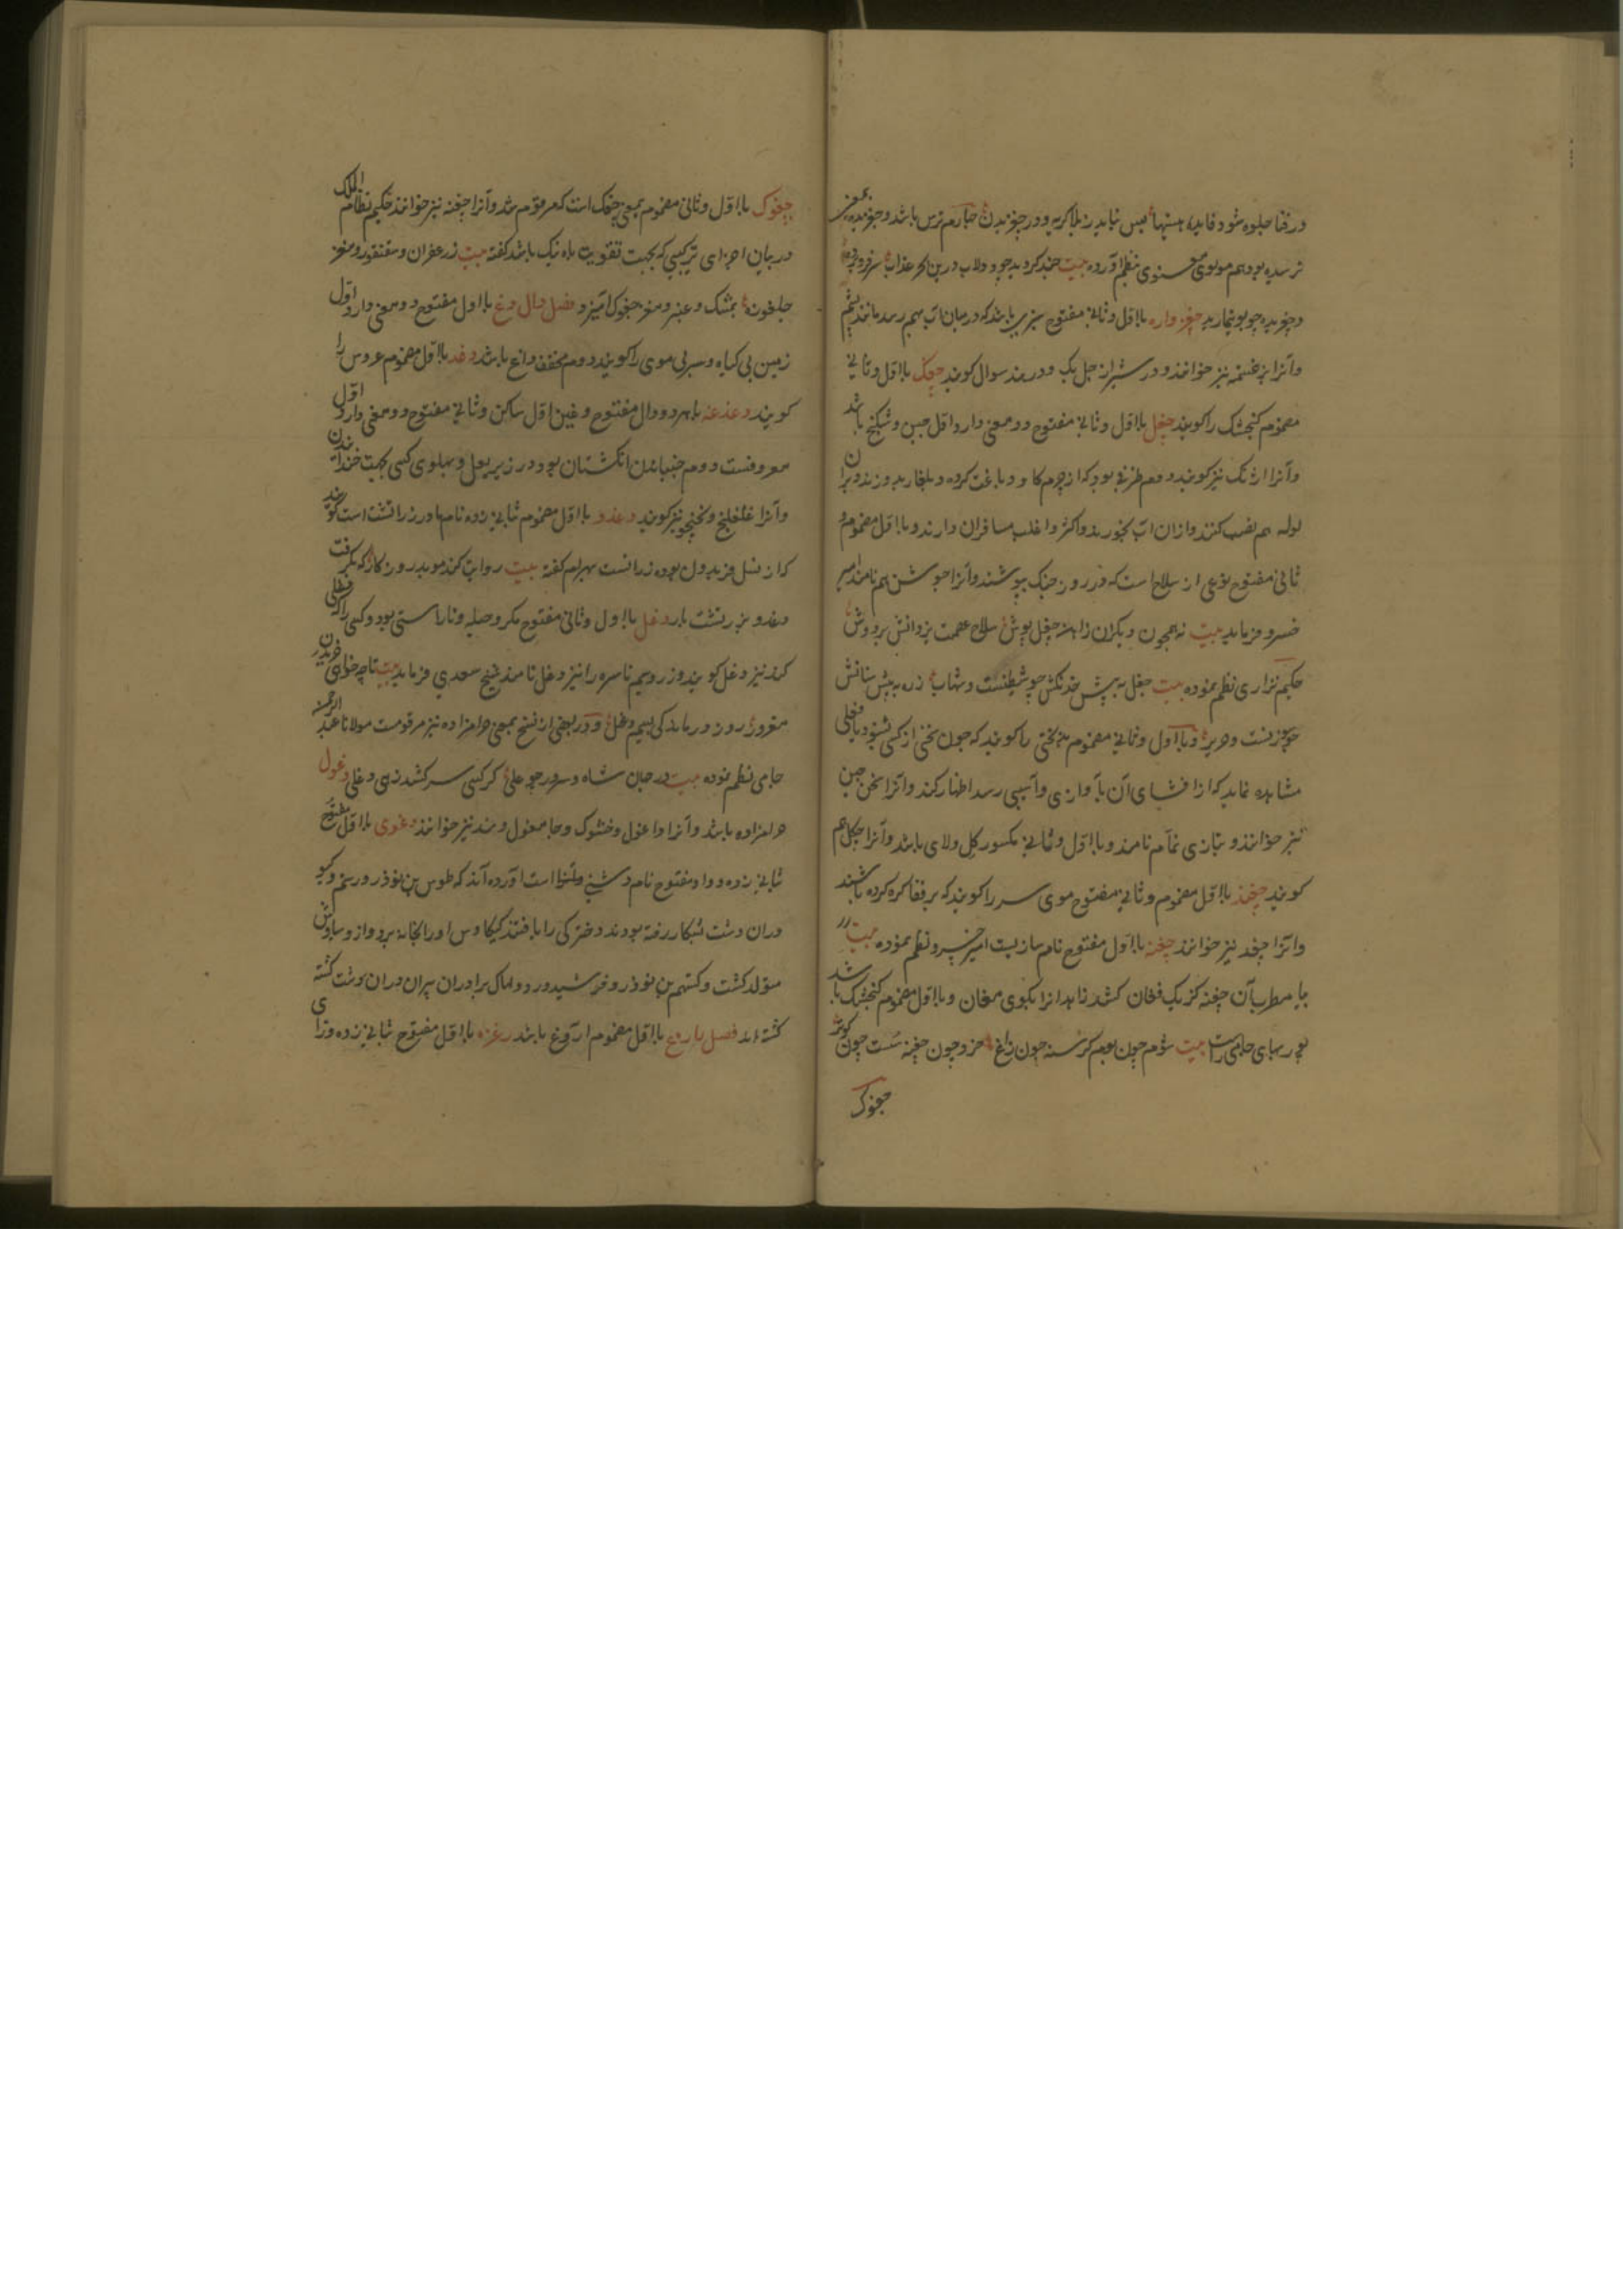 در فنا جلوه شود فایده هستیها پس نباید ز بلا گریه و در چغزیدن چهارم ترس باشد و چغزیده بمعنی
ترسیده بود هم مولوی معنوی نظم آورده بیت چند گردید چو دولاب درین بحر عذاب سر فرو برده
و چغزیده چو بوتیمارید چغز واره با اول و ثانی مفتوح سبزی باشد که در میان آب بهم رسد مانند پشم
و آنرا بزغسمه نیز خوانند و در شیراز جل بک و در هند سوال گویند چغک با اول و ثانی
مضموم گنجشک را گویند چغل با اول و ثانی مفتوح دو معنی دارد اول چین و شکنج باشد
و آنرا ارژنگ نیز گویند دوم ظرفی بود که از چرم گاو دباغت کرده و بلغار بدوزند و بران
لوله هم نصب کنند و ازان آب بخورند و اکثر و اغلب مسافران دارند و با اول مضموم و
ثانی مفتوح نوعی از سلاح است که در روز جنگ بپوشند و آنرا جوشن هم نامند امیر
خسرو فرماید بیت نه همچون دیگران زاهن چغل پوش سلاح عصمت یزدانش بر دوش
حکیم نزاری نظم نموده بیت چغل به پیش خدنگش چو شیطنست و شهاب زره به پیش سنانش
چو سوزنست و حریر و با اول و ثانی مضموم بدبختی را گویند که چون سخنی از کسی بشنود یا فعلی
مشاهده نماید که از افشای آن بآن آزاری و آسیبی رسد اظهار کند و آنرا سخن چین
نیز خوانند و بتازی نمام نامند و با اول و ثانی مکسور گل و لای باشد و آنرا چکل هم
گویند چغند با اول مضموم و ثانی مفتوح موی سر را گویند که بر قفا گره کرده باشند
و آنرا چغد نیز خوانند چغنه با اول مفتوح نام سازیست امیر خسرو نظم نموده بیت
بیا مطرب آن چغنه کز یک فغان کشد زاهدانرا بکوی مغان و با اول مضموم گنجشک باشد
پور بهای جامی راست بیت شوم چون بوم گر سنه چون زاغ دزد چون چغنه سست چون کوتر
چغوک
چغوک با اول و ثانی مضموم بمعنی چغک است که مرقوم شد و آنرا چغنه نیز خوانند حکیم نظام الملک
در بیان اجزای ترکیبی که بجهت تقویت باه نیک باشد گفته بیت زعفران و سقنقور و مغز
جلغوزه بمشک و عنبر و مغز چغوک آمیزد فصل دال و غ با اول مفتوح دو معنی دارد اول
زمین بی گیاه و سر بی موی را گویند دوم مخفف داغ باشد دغد با اول مضموم عروس را
گویند دغدغه با هر دو دال مفتوح و غین اول ساکن و ثانی مفتوح دو معنی دارد اول
معروفست دوم جنبانیدن انگشتان بود در زیر بغل و پهلوی کسی بجهت خندانیدن
و آنرا غلغلیچ و نخجو نیز گویند دغدو با اول مضموم ثانی زده نام مادر زراتشت است گویند
که از نسل فریدون بوده زراتشت بهرام گفته بیت روایت کند موبد روزگار که بگرفت
دغدو بزرتشت بار دغل با اول و ثانی مفتوح مکر و حیله و ناراستی بود و کسی را که دغلی
کند نیز دغل گویند و زر و سیم ناسره را نیز دغل نامند شیخ سعدی فرماید بیت تا چه خواهی خریدن
مغرور روز درماندگی بسیم دغل و در بعضی از نسخ بمعنی حرامزاده نیز مرقومست مولانا عبد الرحمن
جامی نظم نموده بیت در جهان شاه و سرور چو علی گر کسی سر کشد زهی دغلی دغول
حرامزاده باشد و آنرا داغول و خشوک و جامغول و سند نیز خوانند دغوی با اول مفتوح
ثانی زده و واو مفتوح نام دشتی است آورده اند که طوس بن نوذر و رستم و گیو
دران دشت بشکار رفته بودند دخترکی را یافتند کیکاوس او را بخانه برد و از و سیاوش
متولد گشت و گستهم بن نوذر و فرشیدورد و لهاک برادران پیران دران دشت کشته
گشته اند فصل را رغ با اول مضموم آروغ باشد رغزه با اول مفتوح ثانی زده و زای